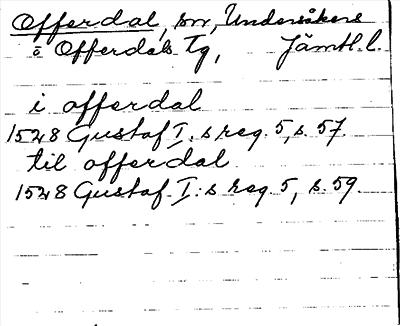 Offerdal, sn, Undersåkers
o Offerdals Tg, Jämtl. l.
i offerdal
1528 Gustaf I:s reg. 5, s. 57.
til offerdal
1528 Gustaf I:s reg. 5, s. 59.